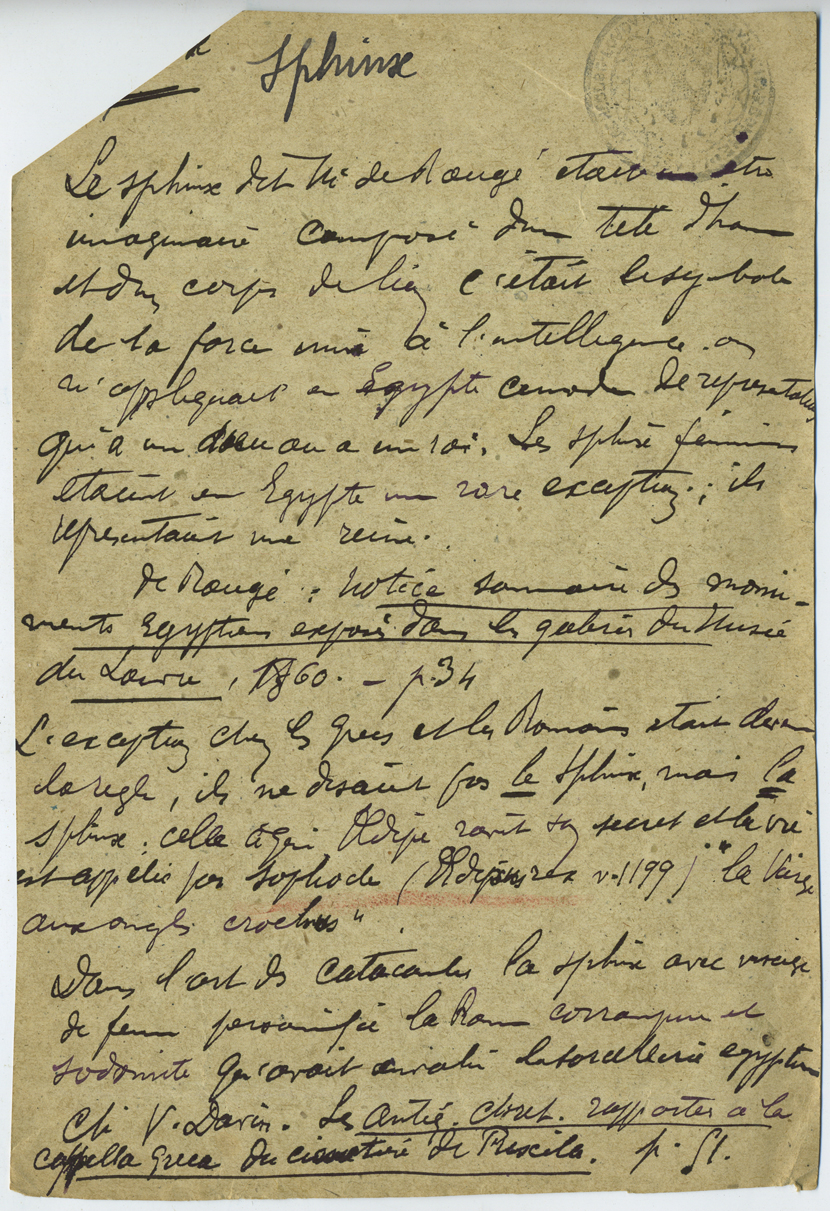 Sphinx
Le sphinx dit Mr de Rougé etait un etre
imaginaire composé d'un tete d'hom
et d'un corps de lion c'était le symbole
de la force unie à l'intelligence. on
n'appliquait en Egypte ce mode de representation
qu'a un dieu ou a un roi. Les sphinx féminins
etaient en Egypte un rare exception ; ils
representaient une reine.
de Rougé : Notice sommaire des monu-
ments Egyptiens exposés dans les galeries du Musée
du Louvre, 1860. - p. 34
L'exception chez les grecs et les Romains etait devenu
la regle, ils ne disaient pas le sphinx, mais la
sphinx. celle à qui Œdipe ravit son secret et la vie
est appelée par Sophocle (Œdipus rex v. 1199) "la Vierge
aux ongles crochus".
Dans l'art des catacombes la sphinx avec visage
de femme personnifie la Rome corrompue et
sodomite qu'avait envahi la sorcellerie egyptienne
V. Davin. Les antiq. chret. rapportées a la
cappella greca du cimetiere de Priscila. p. 51.